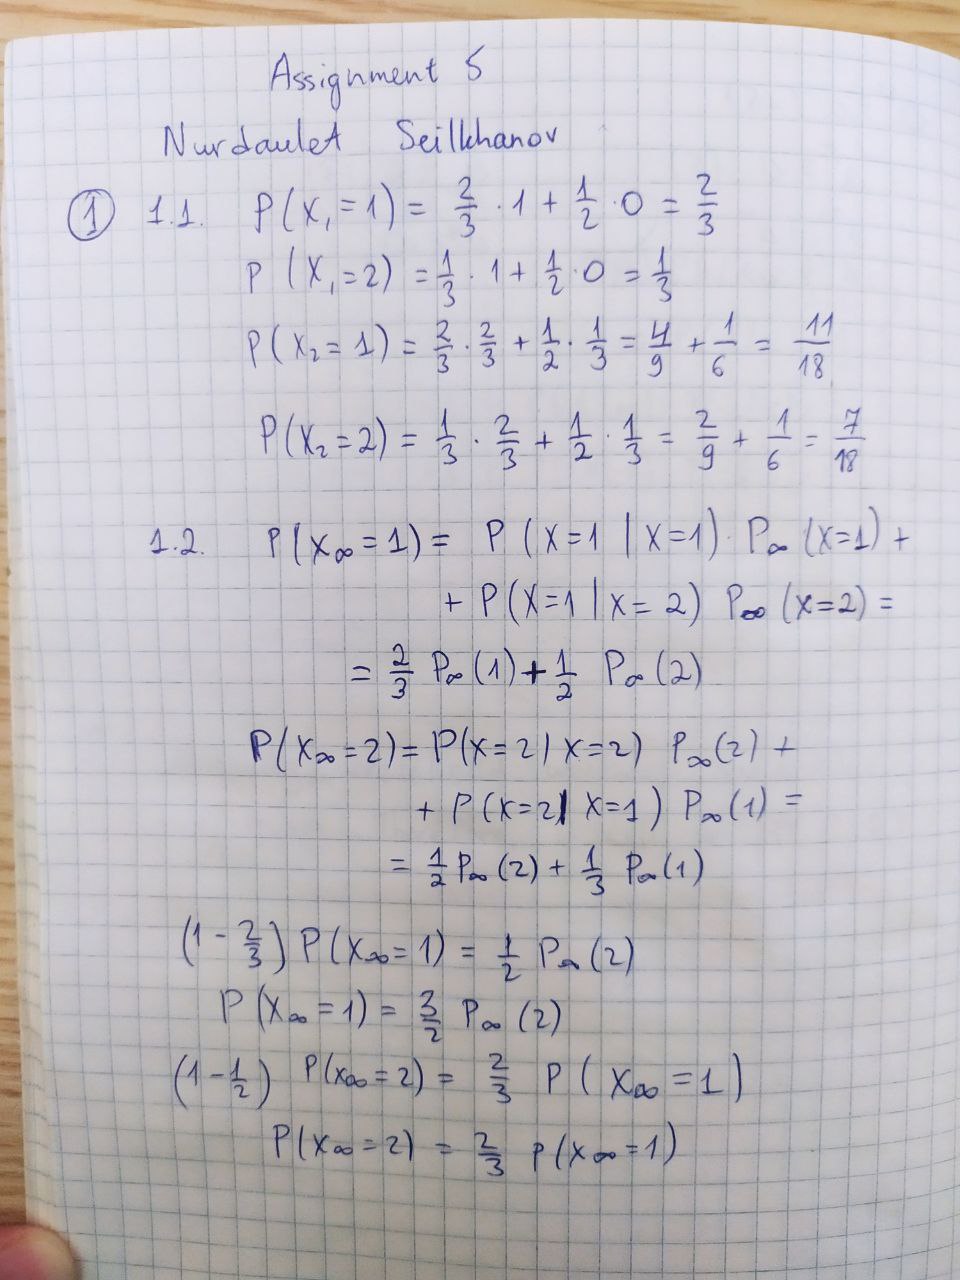 Assignment 5
Nurdaulet Seilkhanov
① 1.1. P(X₁=1) = 2/3 · 1 + 1/2 · 0 = 2/3
P(X₁=2) = 1/3 · 1 + 1/2 · 0 = 1/3
P(X₂=1) = 2/3 · 2/3 + 1/2 · 1/3 = 4/9 + 1/6 = 11/18
P(X₂=2) = 1/3 · 2/3 + 1/2 · 1/3 = 2/9 + 1/6 = 7/18
1.2. P(X∞=1) = P(X=1 | X=1) · P∞(X=1) +
+ P(X=1 | X=2) P∞(X=2) =
= 2/3 P∞(1) + 1/2 P∞(2)
P(X∞=2) = P(X=2 | X=2) P∞(2) +
+ P(X=2 | X=1) P∞(1) =
= 1/2 P∞(2) + 1/3 P∞(1)
(1 - 2/3) P(X∞=1) = 1/2 P∞(2)
P(X∞=1) = 3/2 P∞(2)
(1 - 1/2) P(X∞=2) = 2/3 P(X∞=1)
P(X∞=2) = 2/3 P(X∞=1)